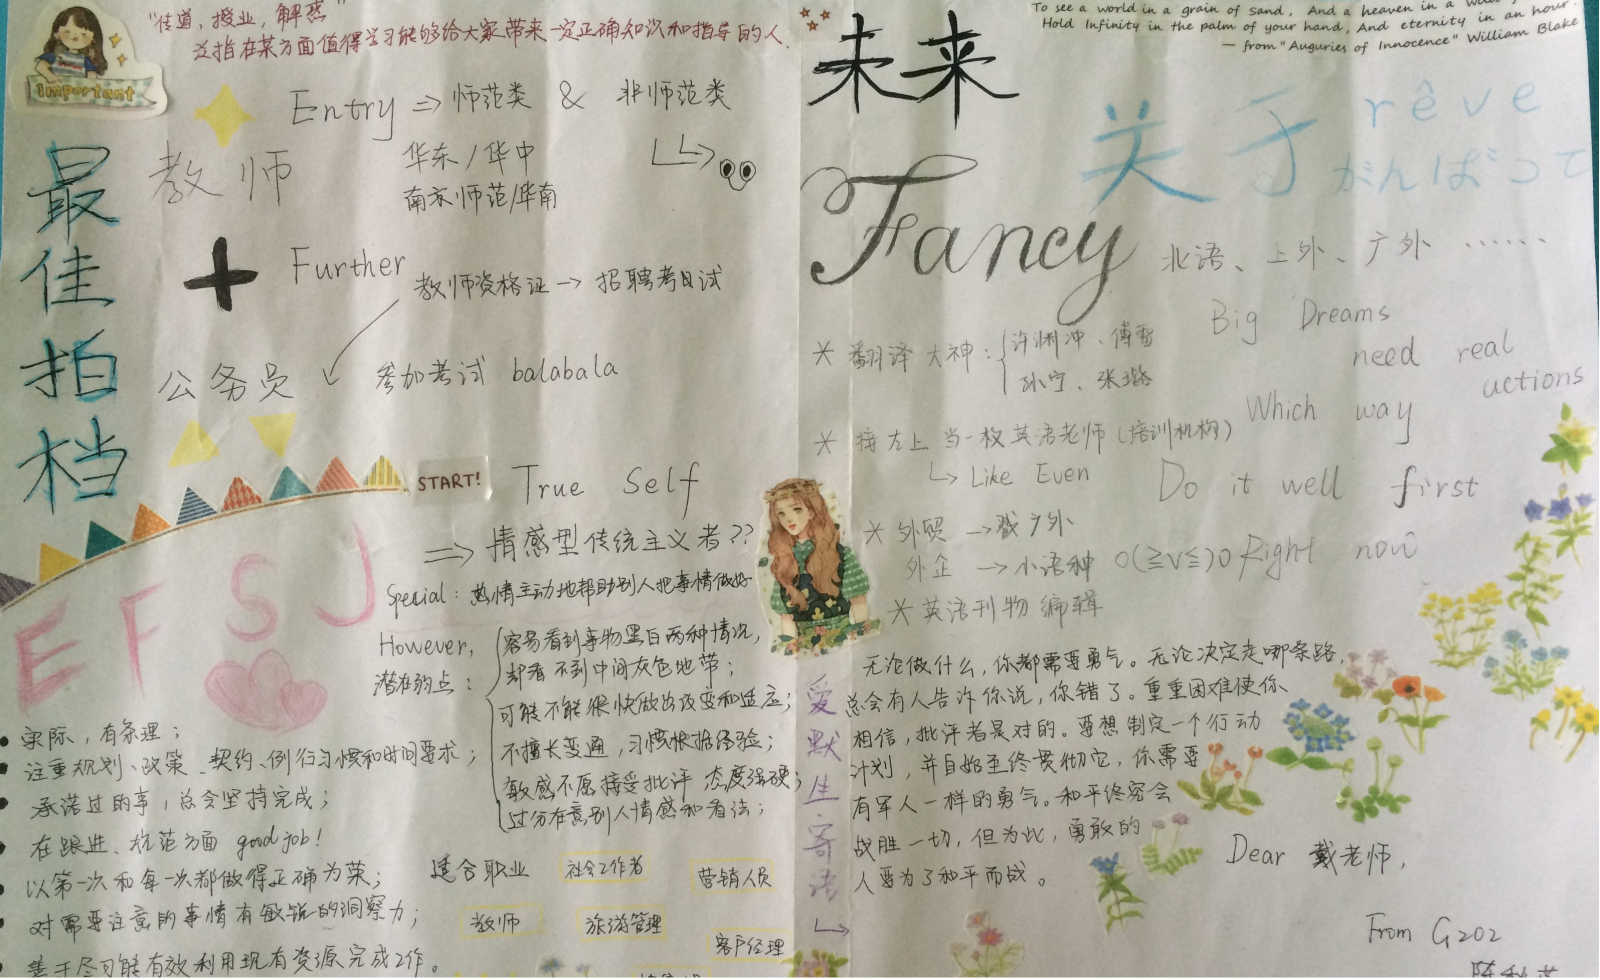 "传道、授业，解惑"
泛指在某方面值得学习能够给大家带来一定正确知识和指导的人.
important
Entry ⇒ 师范类 & 非师范类
教师
华东/华中
南京师范/华南
最佳拍档
+
Further
教师资格证→招聘考试
公务员
参加考试 balabala
START!
True Self
⇒ 情感型传统主义者??
ESFJ
Special: 热情主动地帮助别人把事情做好
However,
潜在弱点:
容易看到事物黑白两种情况,
却看不到中间灰色地带;
可能不能很快做出改变和适应;
不擅长变通,习惯依据经验;
敏感不愿接受批评 态度强硬;
过分在意别人情感和看法;
实际,有条理;
注重规划、政策、契约、例行习惯和时间要求;
承诺过的事,总会坚持完成;
在跟进、规范方面 good job!
以第一次和每一次都做得正确为荣;
对需要注意的事情有敏锐的洞察力;
善于尽可能有效利用现有资源完成工作。
适合职业
社会工作者
营销人员
教师
旅游管理
客户经理
To see a world in a grain of sand, And a heaven in a
Hold Infinity in the palm of your hand, And eternity in an hour.
— from "Auguries of Innocence" William Blake
未来
关于
rêve
がんばって
Fancy
北语、上外、广外 ……
Big Dreams
need real
actions
* 翻译大神: 许渊冲、傅雷
孙宁、张璐
Which way
* 接左上 当一枚英语老师(培训机构)
↳ Like Even
Do it well first
* 外贸 → 戳广外
外企 → 小语种 O(≧∨≦)O
Right now
* 英语刊物编辑
爱默生寄语
无论做什么,你都需要勇气。无论决定走哪条路,
总会有人告诉你说,你错了。重重困难使你
相信,批评者是对的。要想制定一个行动
计划,并自始至终贯彻它,你需要
有军人一样的勇气。和平终究会
战胜一切,但为此,勇敢的
人要为了和平而战。
Dear 戴老师,
From G202